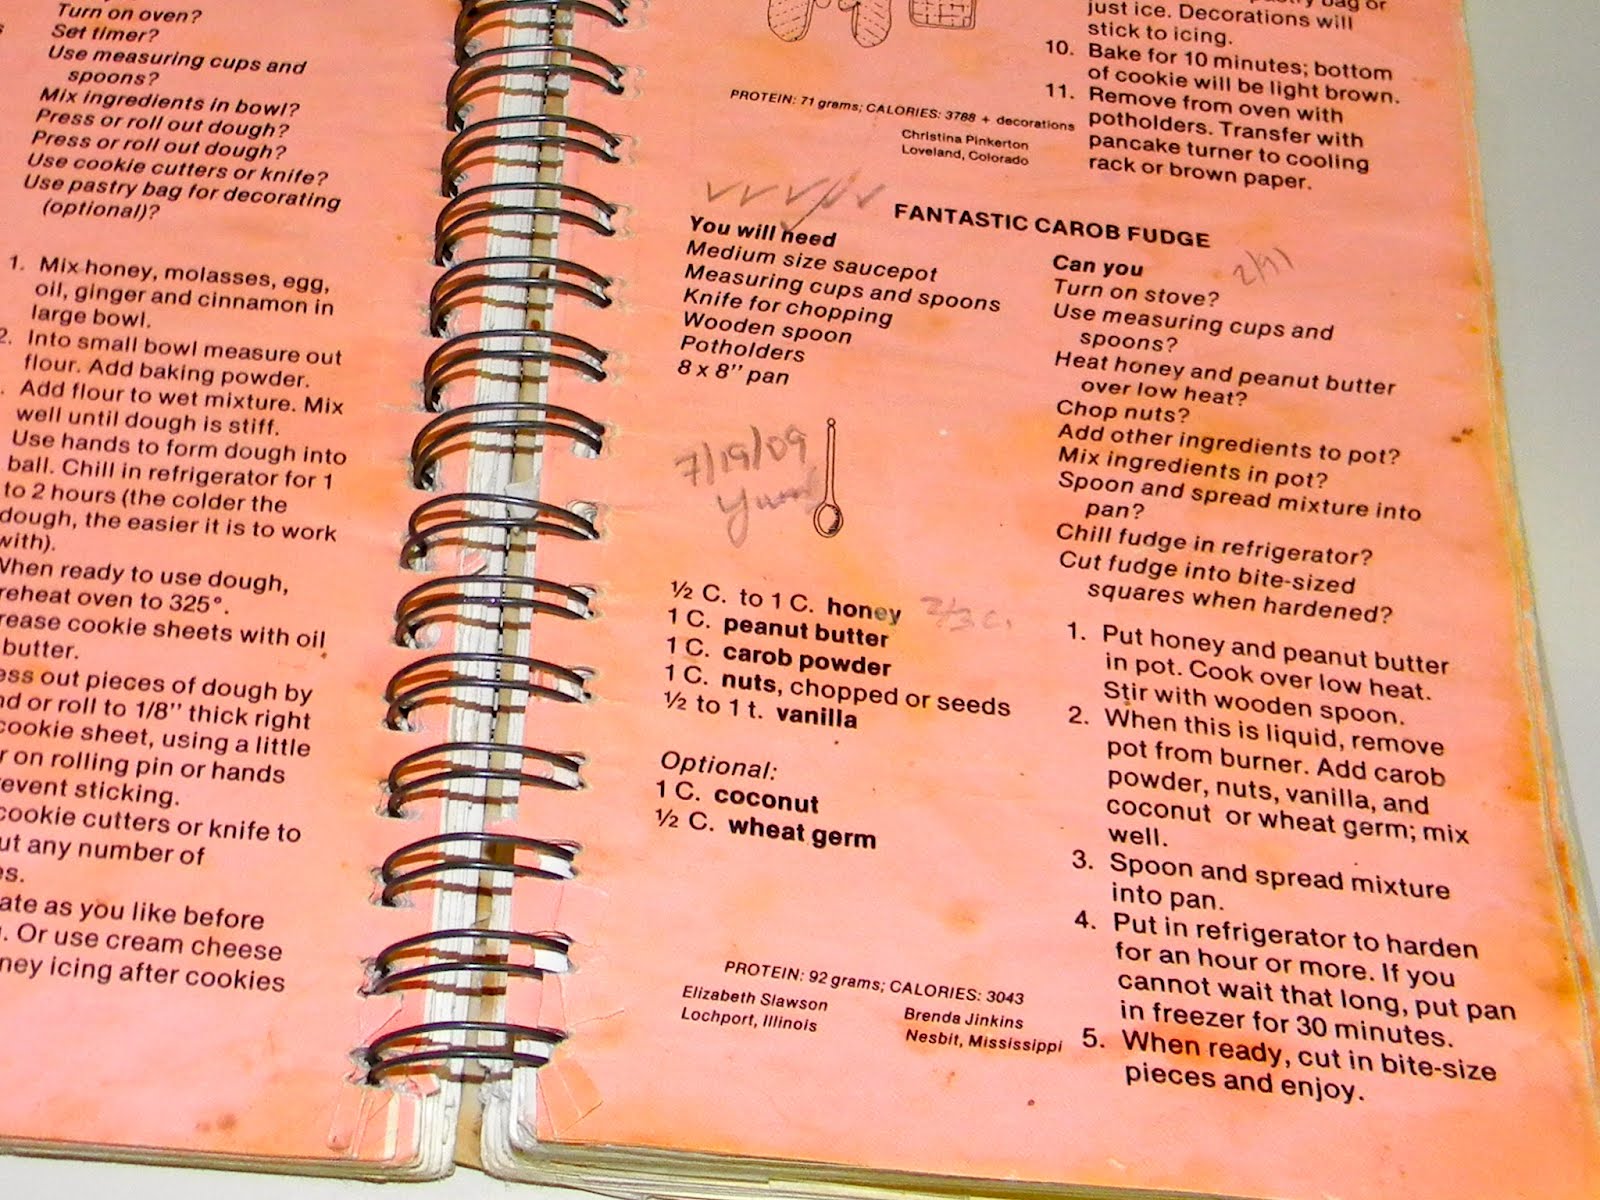 Turn on oven?
Set timer?
Use measuring cups and
spoons?
Mix ingredients in bowl?
Press or roll out dough?
Press or roll out dough?
Use cookie cutters or knife?
Use pastry bag for decorating
(optional)?
1. Mix honey, molasses, egg,
oil, ginger and cinnamon in
large bowl.
2. Into small bowl measure out
flour. Add baking powder.
Add flour to wet mixture. Mix
well until dough is stiff.
Use hands to form dough into
ball. Chill in refrigerator for 1
to 2 hours (the colder the
dough, the easier it is to work
with).
When ready to use dough,
reheat oven to 325°.
rease cookie sheets with oil
butter.
ess out pieces of dough by
nd or roll to 1/8" thick right
cookie sheet, using a little
r on rolling pin or hands
event sticking.
cookie cutters or knife to
ut any number of
es.
ate as you like before
. Or use cream cheese
ney icing after cookies
bag or
just ice. Decorations will
stick to icing.
10. Bake for 10 minutes; bottom
of cookie will be light brown.
11. Remove from oven with
potholders. Transfer with
pancake turner to cooling
rack or brown paper.
PROTEIN: 71 grams; CALORIES: 3788 + decorations
Christina Pinkerton
Loveland, Colorado
FANTASTIC CAROB FUDGE
You will need
Medium size saucepot
Measuring cups and spoons
Knife for chopping
Wooden spoon
Potholders
8 x 8" pan
7/19/09
Yum
½ C. to 1 C. honey 2/3 C.
1 C. peanut butter
1 C. carob powder
1 C. nuts, chopped or seeds
½ to 1 t. vanilla
Optional:
1 C. coconut
½ C. wheat germ
PROTEIN: 92 grams; CALORIES: 3043
Elizabeth Slawson
Lochport, Illinois
Brenda Jinkins
Nesbit, Mississippi
Can you
2/91
Turn on stove?
Use measuring cups and
spoons?
Heat honey and peanut butter
over low heat?
Chop nuts?
Add other ingredients to pot?
Mix ingredients in pot?
Spoon and spread mixture into
pan?
Chill fudge in refrigerator?
Cut fudge into bite-sized
squares when hardened?
1. Put honey and peanut butter
in pot. Cook over low heat.
Stir with wooden spoon.
2. When this is liquid, remove
pot from burner. Add carob
powder, nuts, vanilla, and
coconut or wheat germ; mix
well.
3. Spoon and spread mixture
into pan.
4. Put in refrigerator to harden
for an hour or more. If you
cannot wait that long, put pan
in freezer for 30 minutes.
5. When ready, cut in bite-size
pieces and enjoy.